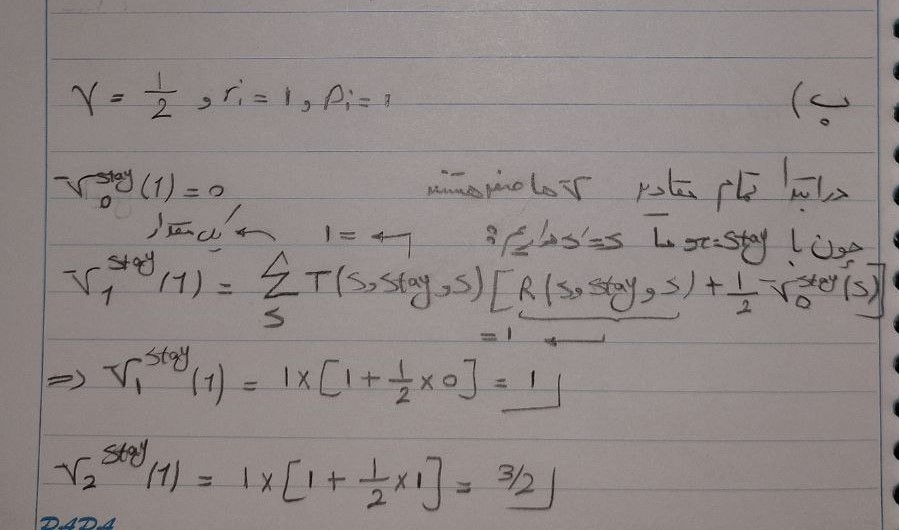 ب) γ = 1/2 , rᵢ = 1 , Pᵢ = 1
در ابتدا تمام مقادیر V ها صفر هستند V₀^stay(1) = 0
چون با π=stay ما s=s' داریم: 1 =
V₁^stay(1) = Σ_S T(s,stay,s) [R(s,stay,s) + 1/2 V₀^stay(s)]
=1
⇒ V₁^stay(1) = 1×[1 + 1/2 × 0] = 1
V₂^stay(1) = 1×[1 + 1/2 ×1] = 3/2
DADA